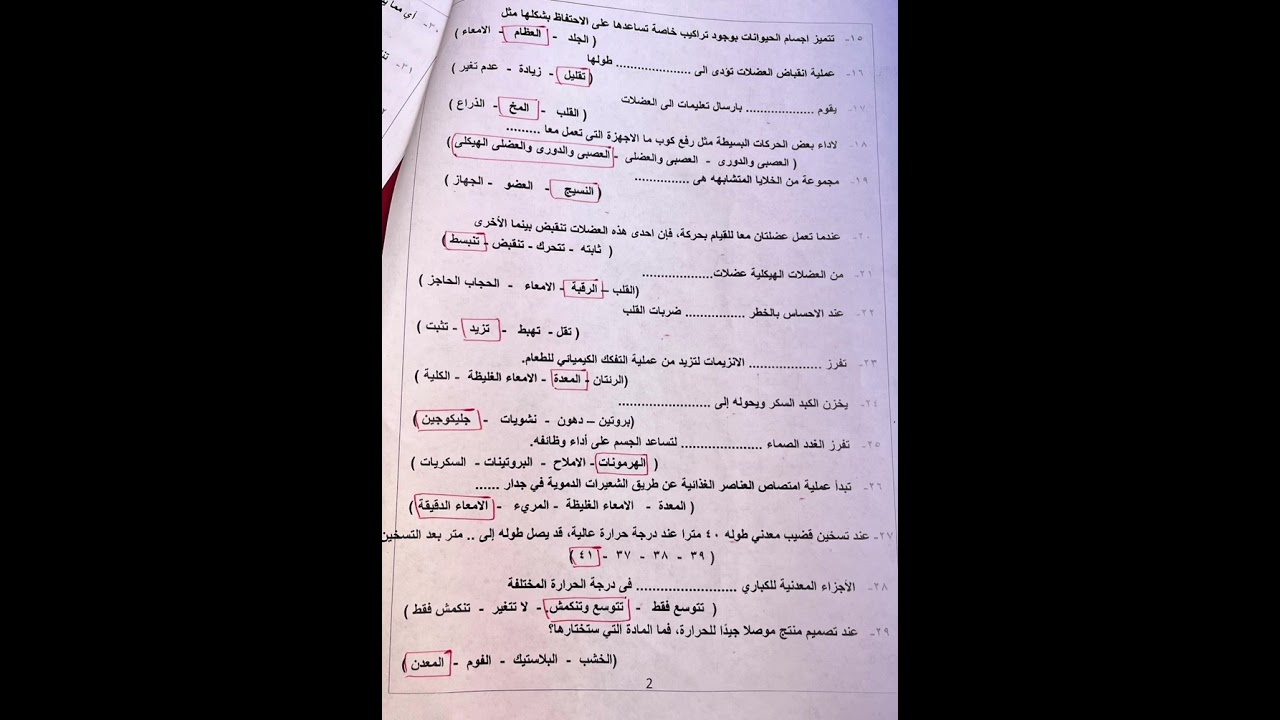 ٣٠- أي مما ي
٣١-
١٥- تتميز اجسام الحيوانات بوجود تراكيب خاصة تساعدها على الاحتفاظ بشكلها مثل
( الجلد - العظام - الامعاء )
١٦- عملية انقباض العضلات تؤدى الى .................... طولها
( تقليل - زيادة - عدم تغير )
١٧- يقوم .................. بارسال تعليمات الى العضلات
( القلب - المخ - الذراع )
١٨- لاداء بعض الحركات البسيطة مثل رفع كوب ما الاجهزة التى تعمل معا .........
( العصبى والدورى - العصبى والعضلى - العصبى والدورى والعضلى الهيكلى )
١٩- مجموعة من الخلايا المتشابهه هى ...............
( النسيج - العضو - الجهاز )
٢٠- عندما تعمل عضلتان معا للقيام بحركة، فإن احدى هذه العضلات تنقبض بينما الأخرى
( ثابته - تتحرك - تنقبض - تنبسط )
٢١- من العضلات الهيكلية عضلات...................
(القلب – الرقبة - الامعاء - الحجاب الحاجز )
٢٢- عند الاحساس بالخطر ................ ضربات القلب
( تقل - تهبط - تزيد - تثبت )
٢٣- تفرز ................... الانزيمات لتزيد من عملية التفكك الكيميائي للطعام.
(الرئتان - المعدة - الامعاء الغليظة - الكلية )
٢٤- يخزن الكبد السكر ويحوله إلى ........................
(بروتين – دهون - نشويات - جليكوجين )
٢٥- تفرز الغدد الصماء ..................... لتساعد الجسم على أداء وظائفه.
( الهرمونات - الاملاح - البروتينات - السكريات )
٢٦- تبدأ عملية امتصاص العناصر الغذائية عن طريق الشعيرات الدموية في جدار ......
( المعدة - الامعاء الغليظة - المريء - الامعاء الدقيقة )
٢٧- عند تسخين قضيب معدني طوله ٤٠ مترا عند درجة حرارة عالية، قد يصل طوله إلى .. متر بعد التسخين
( ٣٩ - ٣٨ - ٣٧ - ٤١ )
٢٨- الأجزاء المعدنية للكباري .......................... فى درجة الحرارة المختلفة
( تتوسع فقط - تتوسع وتنكمش. - لا تتغير - تنكمش فقط )
٢٩- عند تصميم منتج موصلا جيدًا للحرارة، فما المادة التي ستختارها؟
(الخشب - البلاستيك - الفوم - المعدن )
2